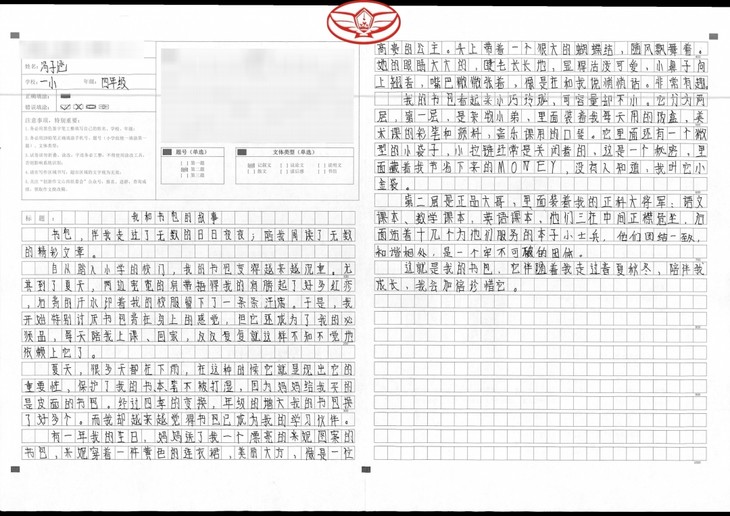 姓名：冯子函
学校：一小 年级：四年级
正确填涂
错误填涂
注意事项，特别重要：
题号（单选）
[ ] 第一题
[ ] 第二题
[ ] 第三题
文体类型（单选）
[ ] 记叙文 [ ] 议论文 [ ] 说明文
[ ] 散文 [ ] 读后感 [ ] 书信
标题： 我和书包的故事
书包，伴我走过了无数的日日夜夜；陪我阅读了无数
的精彩文章。
自从踏入小学的校门，我的书包变得越来越沉重。尤
其到了夏天，两边宽宽的肩带把得我的肩膀起了好多红痧
，如弟的汗水织着我的校服留下了一条条汗痕。于是，我
开始特别讨厌书包背在身上的感觉，但它还成为了我的必
须品，每天陪我上课、回家，反反复复就这样不知不觉地
依赖上它了。
夏天，很多天都在下雨，在这种时候它就显现出它的
重要性，保护了我的书本，着不被打湿，因为妈妈给我买的
是皮面的书包。经过四季的变换，年级的增大我的书包换
了好多个。而我却越来越觉得书包已成为我的学习伙伴。
有一年我的生日，妈妈送了我一个漂亮的美妮图案的
书包，美妮穿着一件黄色的连衣裙，美丽大方，像是一位
高贵的公主。头上带着一个很大的蝴蝶结，随风飘舞着。
她的眼睛大大的，睫毛长长的，显得活泼可爱，小鼻子向
上翘着，嘴巴微微张着，像是在和我说悄悄话。非常有趣
我的书包看起来小巧玲珑，可容量却不小。它分为两
层，第一层，是杂物小弟，里面装着我每天用的饭盒，美
术课的彩笔和颜料，音乐课用的口琴。它里面还有一个微
型的小袋子，小拉链经常是关闭着的，这是一个秘密，里
面藏着我节省下来的MONEY，没有人知道，我叫它小
金袋。
第二层是正品大哥，里面装着我的正科大将军：语文
课本、数学课本，英语课本，他们三在中间正襟危坐，后
面站着十几个为他们服务的本子小士兵，他们团结一致，
和谐相处，是一个牢不可破的团体。
这就是我的书包，它伴随着我走过春夏秋冬，陪伴我
成长，我会加倍珍惜它。